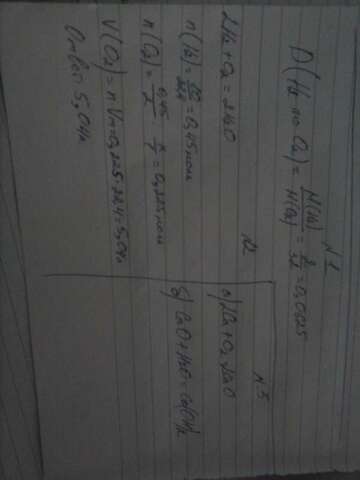 №1
D(H₂ по O₂) = M(H₂)/M(O₂) = 2/32 = 0,0625
№2
2H₂ + O₂ = 2H₂O
n(H₂) = 10/22,4 = 0,45 моль
n(O₂) = 0,45/2 · 1/1 = 0,225 моль
V(O₂) = n·Vm = 0,225·22,4 = 5,04л
Ответ: 5,04л
№3
а) 2Ca + O₂ = 2CaO
б) CaO + H₂O = Ca(OH)₂